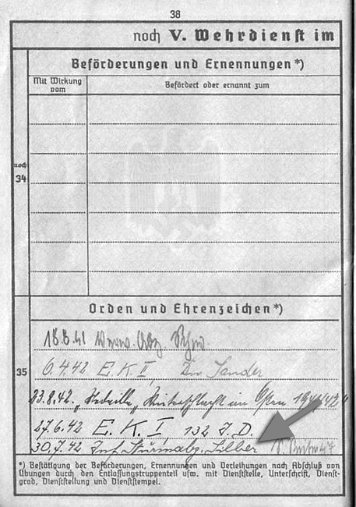 38
noch V. Wehrdienst im
Beförderungen und Ernennungen*)
Mit Wirkung vom
Befördert oder ernannt zum
noch 34
Orden und Ehrenzeichen*)
18.8.41 Verw. Abz. Schw.
35
6.4.42 E. K. II Sander
23.8.42. „Medaille" Winterschlacht im Osten 1941/42"
27.6.42 E. K. I. 132 J. D.
30.7.42 Inf. Sturmabz. Silber
*) Bestätigung der Beförderungen, Ernennungen und Verleihungen nach Abschluß von
Übungen durch den Entlassungstruppenteil usw. mit Dienststelle, Unterschrift, Dienst-
grad, Dienststellung und Dienststempel.